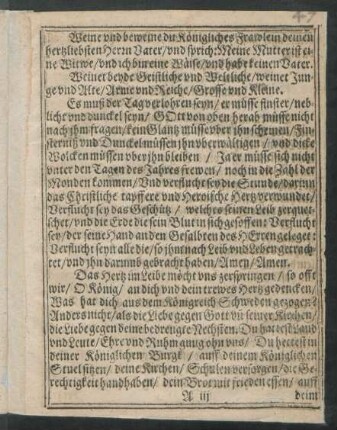 47
Weine vnd beweine du Königliches Frawlein deinen
hertzliebsten Herrn Vater/ vnd sprich: Meine Mutter ist ei-
ne Witwe/ vnd ich bin eine Wäise/ vnd habe keinen Vater.
Weinet beyde Geistliche vnd Weltliche/ weinet Jun-
ge vnd Alte/ Arme vnd Reiche/ Grosse vnd Kleine.
Es muß der Tag verlohren seyn/ er müsse finster/ neb-
licht vnd dunckel seyn/ GOtt von oben herab müsse nicht
nach jhm fragen/ kein Glantz müsse vber jhn scheinen/ Fin-
sterniß vnd Dunckel müssen jhn vberwältigen/ vnd dicke
Wolcken müssen vber jhn bleiben/ Ja er müsse sich nicht
vnter den Tagen des Jahres frewen/ noch in die Zahl der
Monden kommen/ Vnd verflucht sey die Stunde/ darinn
das Christliche tapffere vnd Heroische Hertz verwundet/
Verflucht sey das Geschütz/ welches seinen Leib zerquet-
schet/ vnd die Erde die sein Blut in sich gesoffen: Verflucht
sey/ der seine Hand an den Gesalbten des HErren geleget:
Verflucht seyn alle die/ so jhm nach Leib vnd Leben getrach-
tet/ vnd jhn darumb gebracht haben/ Amen/ Amen.
Das Hertz im Leibe möcht vns zerspringen/ so offt
wir/ O König/ an dich vnd dein trewes Hertz gedencken/
Was hat dich aus dem Königreich Schweden gezogen?
Anders nicht/ als die Liebe gegen Gott vñ seiner Kirchen/
die Liebe gegen deine bedrengte Nechsten. Du hattest Land
vnd Leute/ Ehre vnd Ruhm gnug ohn vns/ Du hettest in
deiner Königlichen Burgk/ auff deinem Königlichen
Stuel sitzen/ deine Kirchen/ Schulen versorgen/ die Ge-
rechtigkeit handhaben/ dein Brot mit frieden essen/ auff
A iij deim